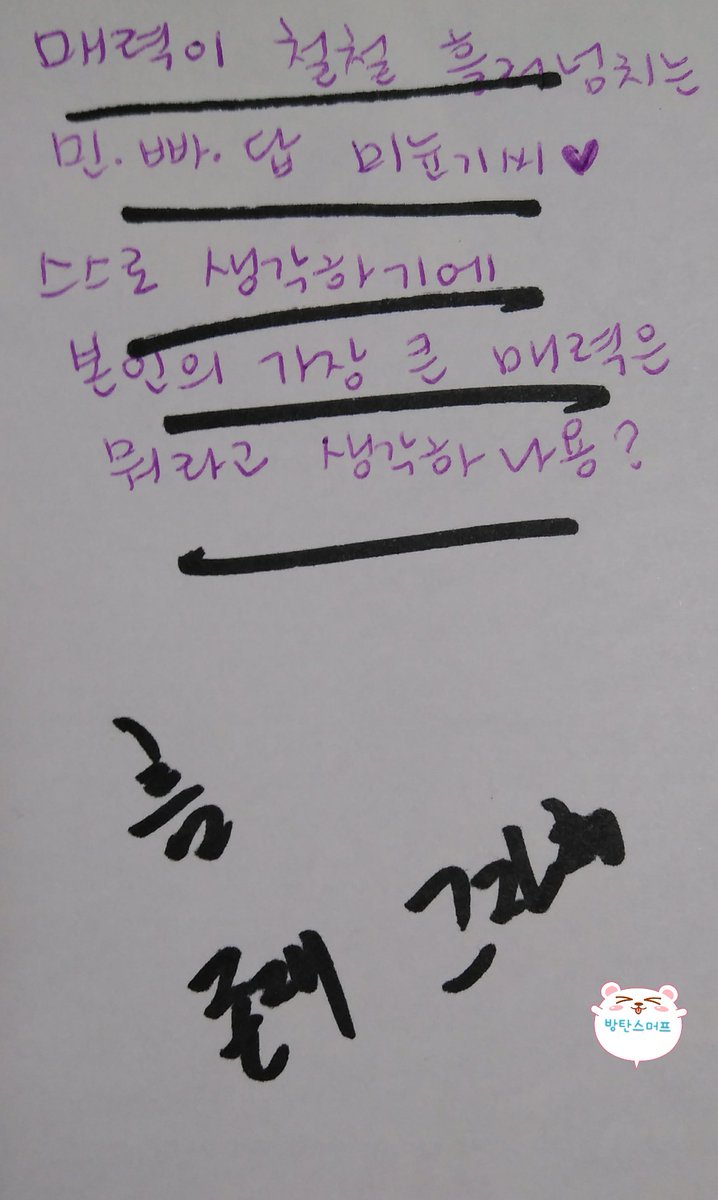 매력이 철철 흘러넘치는
민·빠·답 미뉸기씨♥
스스로 생각하기에
본인의 가장 큰 매력은
뭐라고 생각하나용?
방탄스머프